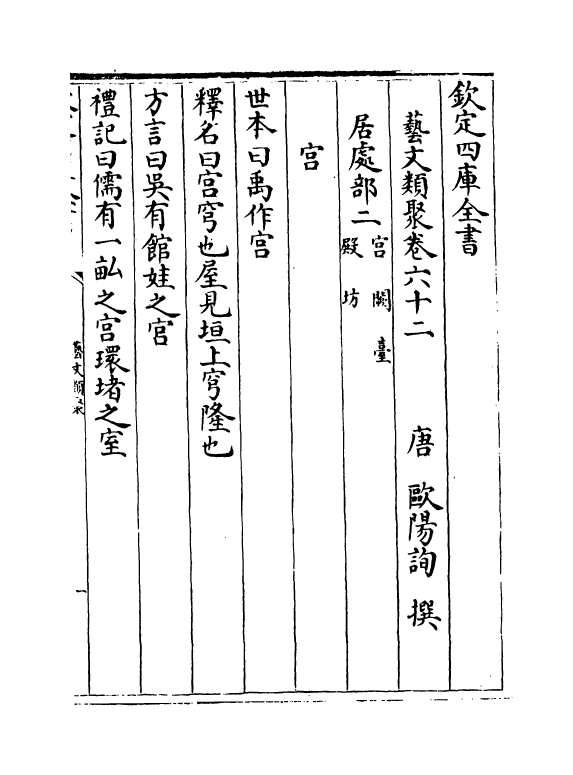 欽定四庫全書
藝文類聚卷六十二
唐 歐陽詢 撰
居處部二 宮 闕 臺 殿 坊
宮
世本曰禹作宮
釋名曰宮穹也屋見垣上穹隆也
方言曰吳有館娃之宮
禮記曰儒有一畝之宮環堵之室
藝文類聚
一